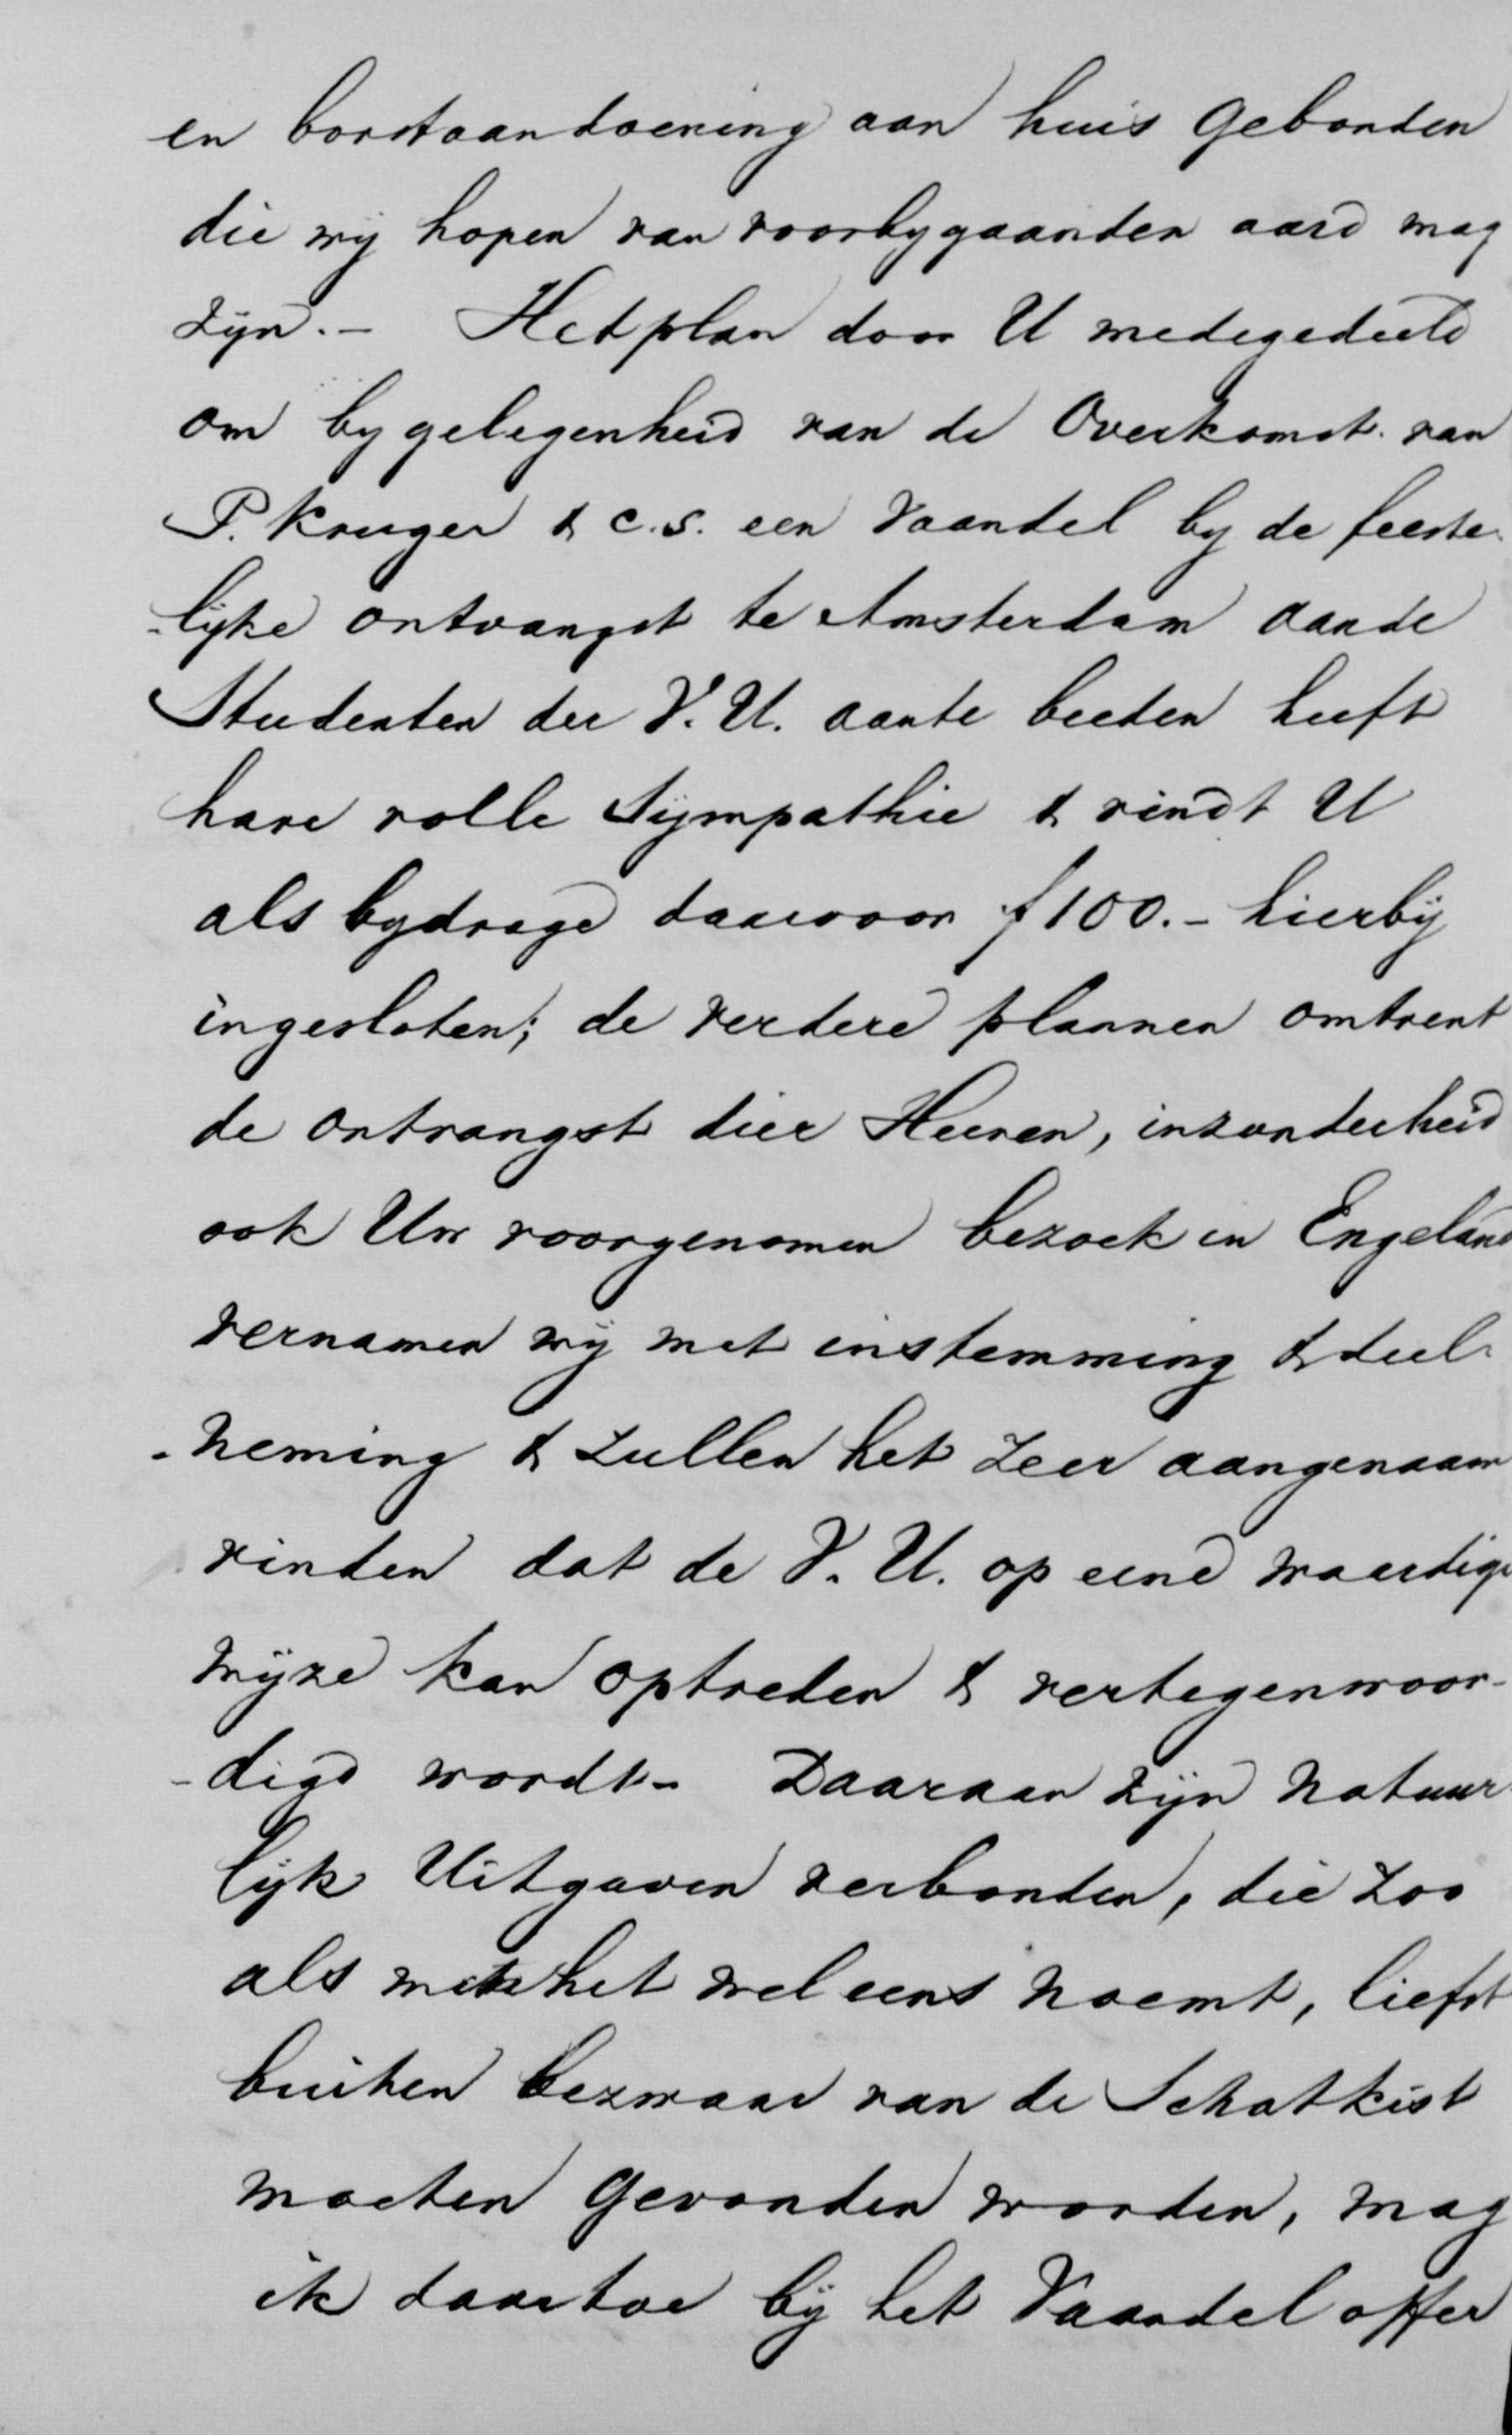 en borstaandoening aan huis gebonden
die wij hopen van voorbygaanden aard mag
zijn. - Het plan door U medegedeeld
om by gelegenheid van de Overkomst van
P. Kruger & c.s. een vaandel by de feeste-
-lijke ontvangst te Amsterdam aan de
Studenten der V. U. aan te bieden heeft
hare volle Sympathie & vindt U
als bydrage daarvoor f 100.- hierbij
ingesloten; de verdere plannen omtrent
de ontvangst dier Heeren, inzonderheid
ook Uw voorgenomen bezoek in Engeland
vernamen wij met instemming & deel-
-neming & zullen het zeer aangenaam
vinden dat de V. U. op eene waardige
wijze kan optreden & vertegenwoor-
-digd wordt - Daaraan zijn natuur
lijk Uitgaven verbonden, die zoo
als men het wel eens noemt, liefst
buiten bezwaar van de Schatkist
moeten gevonden worden, mag
ik daartoe bij het Vaandel offer